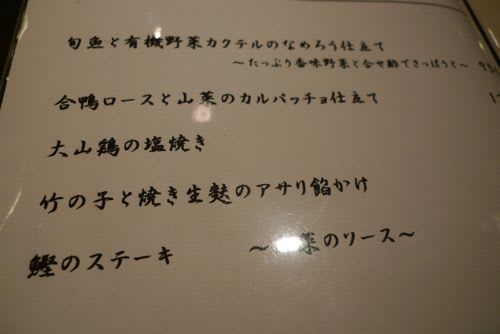 旬魚と有機野菜カクテルのなめろう仕立て
～たっぷり香味野菜と合せ酢でさっぱりと～
合鴨ロースと山菜のカルパッチョ仕立て
大山鶏の塩焼き
竹の子と焼き生麩のアサリ餡かけ
鰹のステーキ ～ 菜のソース～